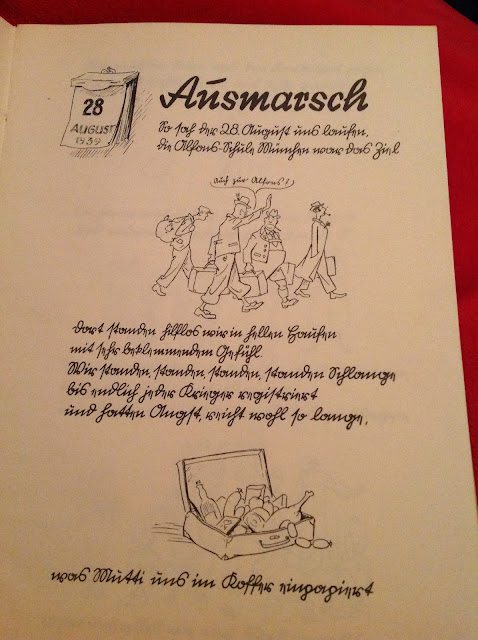 28
AUGUST
1939
Ausmarsch
So sah der 28. August uns laufen,
die Alfons-Schule München war das Ziel
Auch zur Alfons?
Dort standen hilflos wir in hellen Haufen
mit sehr beklemmendem Gefühl.
Wir standen, standen, standen, standen Schlange
bis endlich jeder Krieger registriert
und hatten Angst, reicht wohl so lange,
was Mutti uns im Koffer einpapiert